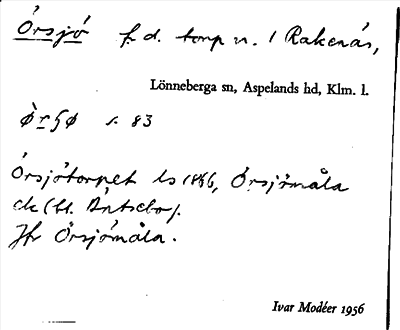 Örsjö f.d. torp n. 1 Rakenäs,
Lönneberga sn, Aspelands hd, Klm. l.
s. 83
Örsjötorpet ls 1866, Örsjömåla
ek (bl.
Jfr Örsjömåla.
Ivar Modéer 1956